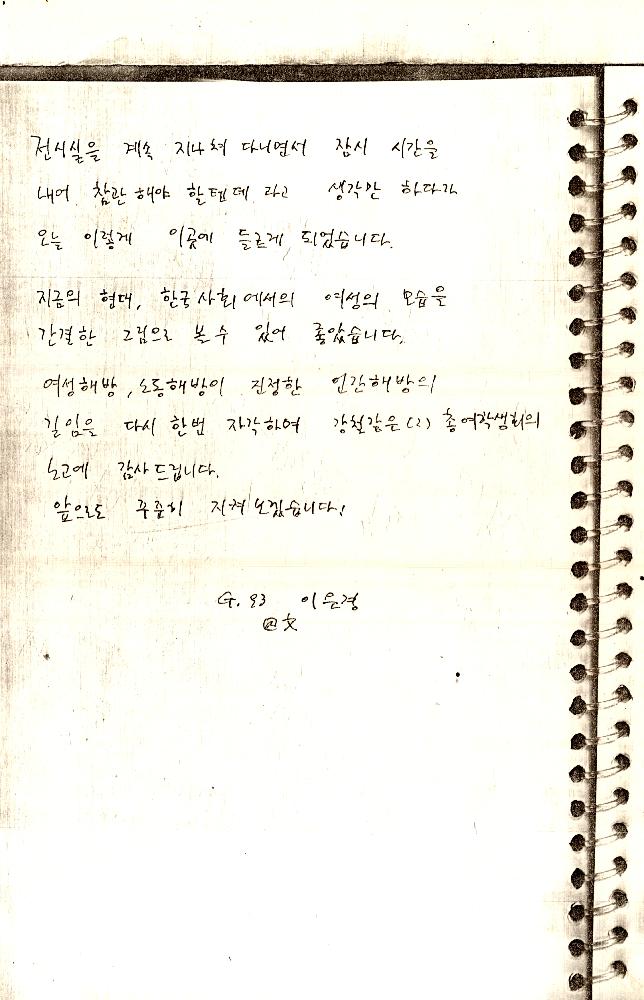 전시실을 계속 지나쳐 다니면서 잠시 시간을
내어 참관해야 할텐데 라고 생각만 하다가
오늘 이렇게 이곳에 들르게 되었습니다.
지금의 현대, 한국사회에서의 여성의 모습을
간결한 그림으로 볼 수 있어 좋았습니다.
여성해방, 노동해방이 진정한 인간해방의
길임을 다시 한번 자각하며 강철같은 (2) 총여학생회의
노고에 감사드립니다.
앞으로도 꾸준히 지켜보겠습니다!
G. 93 이은경